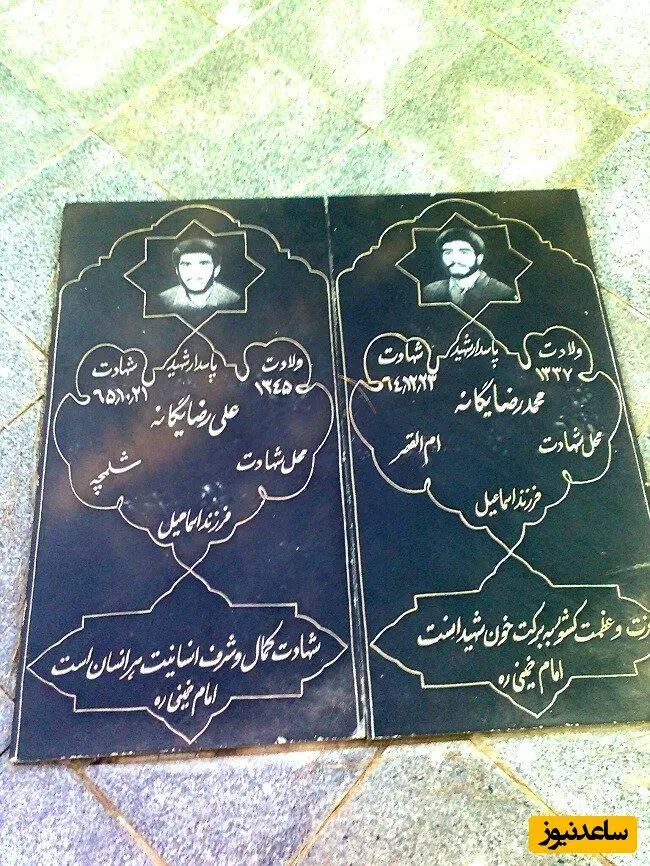 پاسدار شهید
ولادت
۱۳۳۷
شهادت
۶۴،۱۲،۲۳
محمد رضا یگانه
محل شهادت
ام القصر
فرزند اسماعیل
و عظمت کشور به برکت خون شهید است
امام خمینی ره
پاسدار شهید
ولادت
۱۳۴۵
شهادت
۶۵،۱۰،۲۱
علی رضا یگانه
محل شهادت
شلمچه
فرزند اسماعیل
شهادت کمال و شرف انسانیت هر انسان است
امام خمینی ره
ساعدنیوز